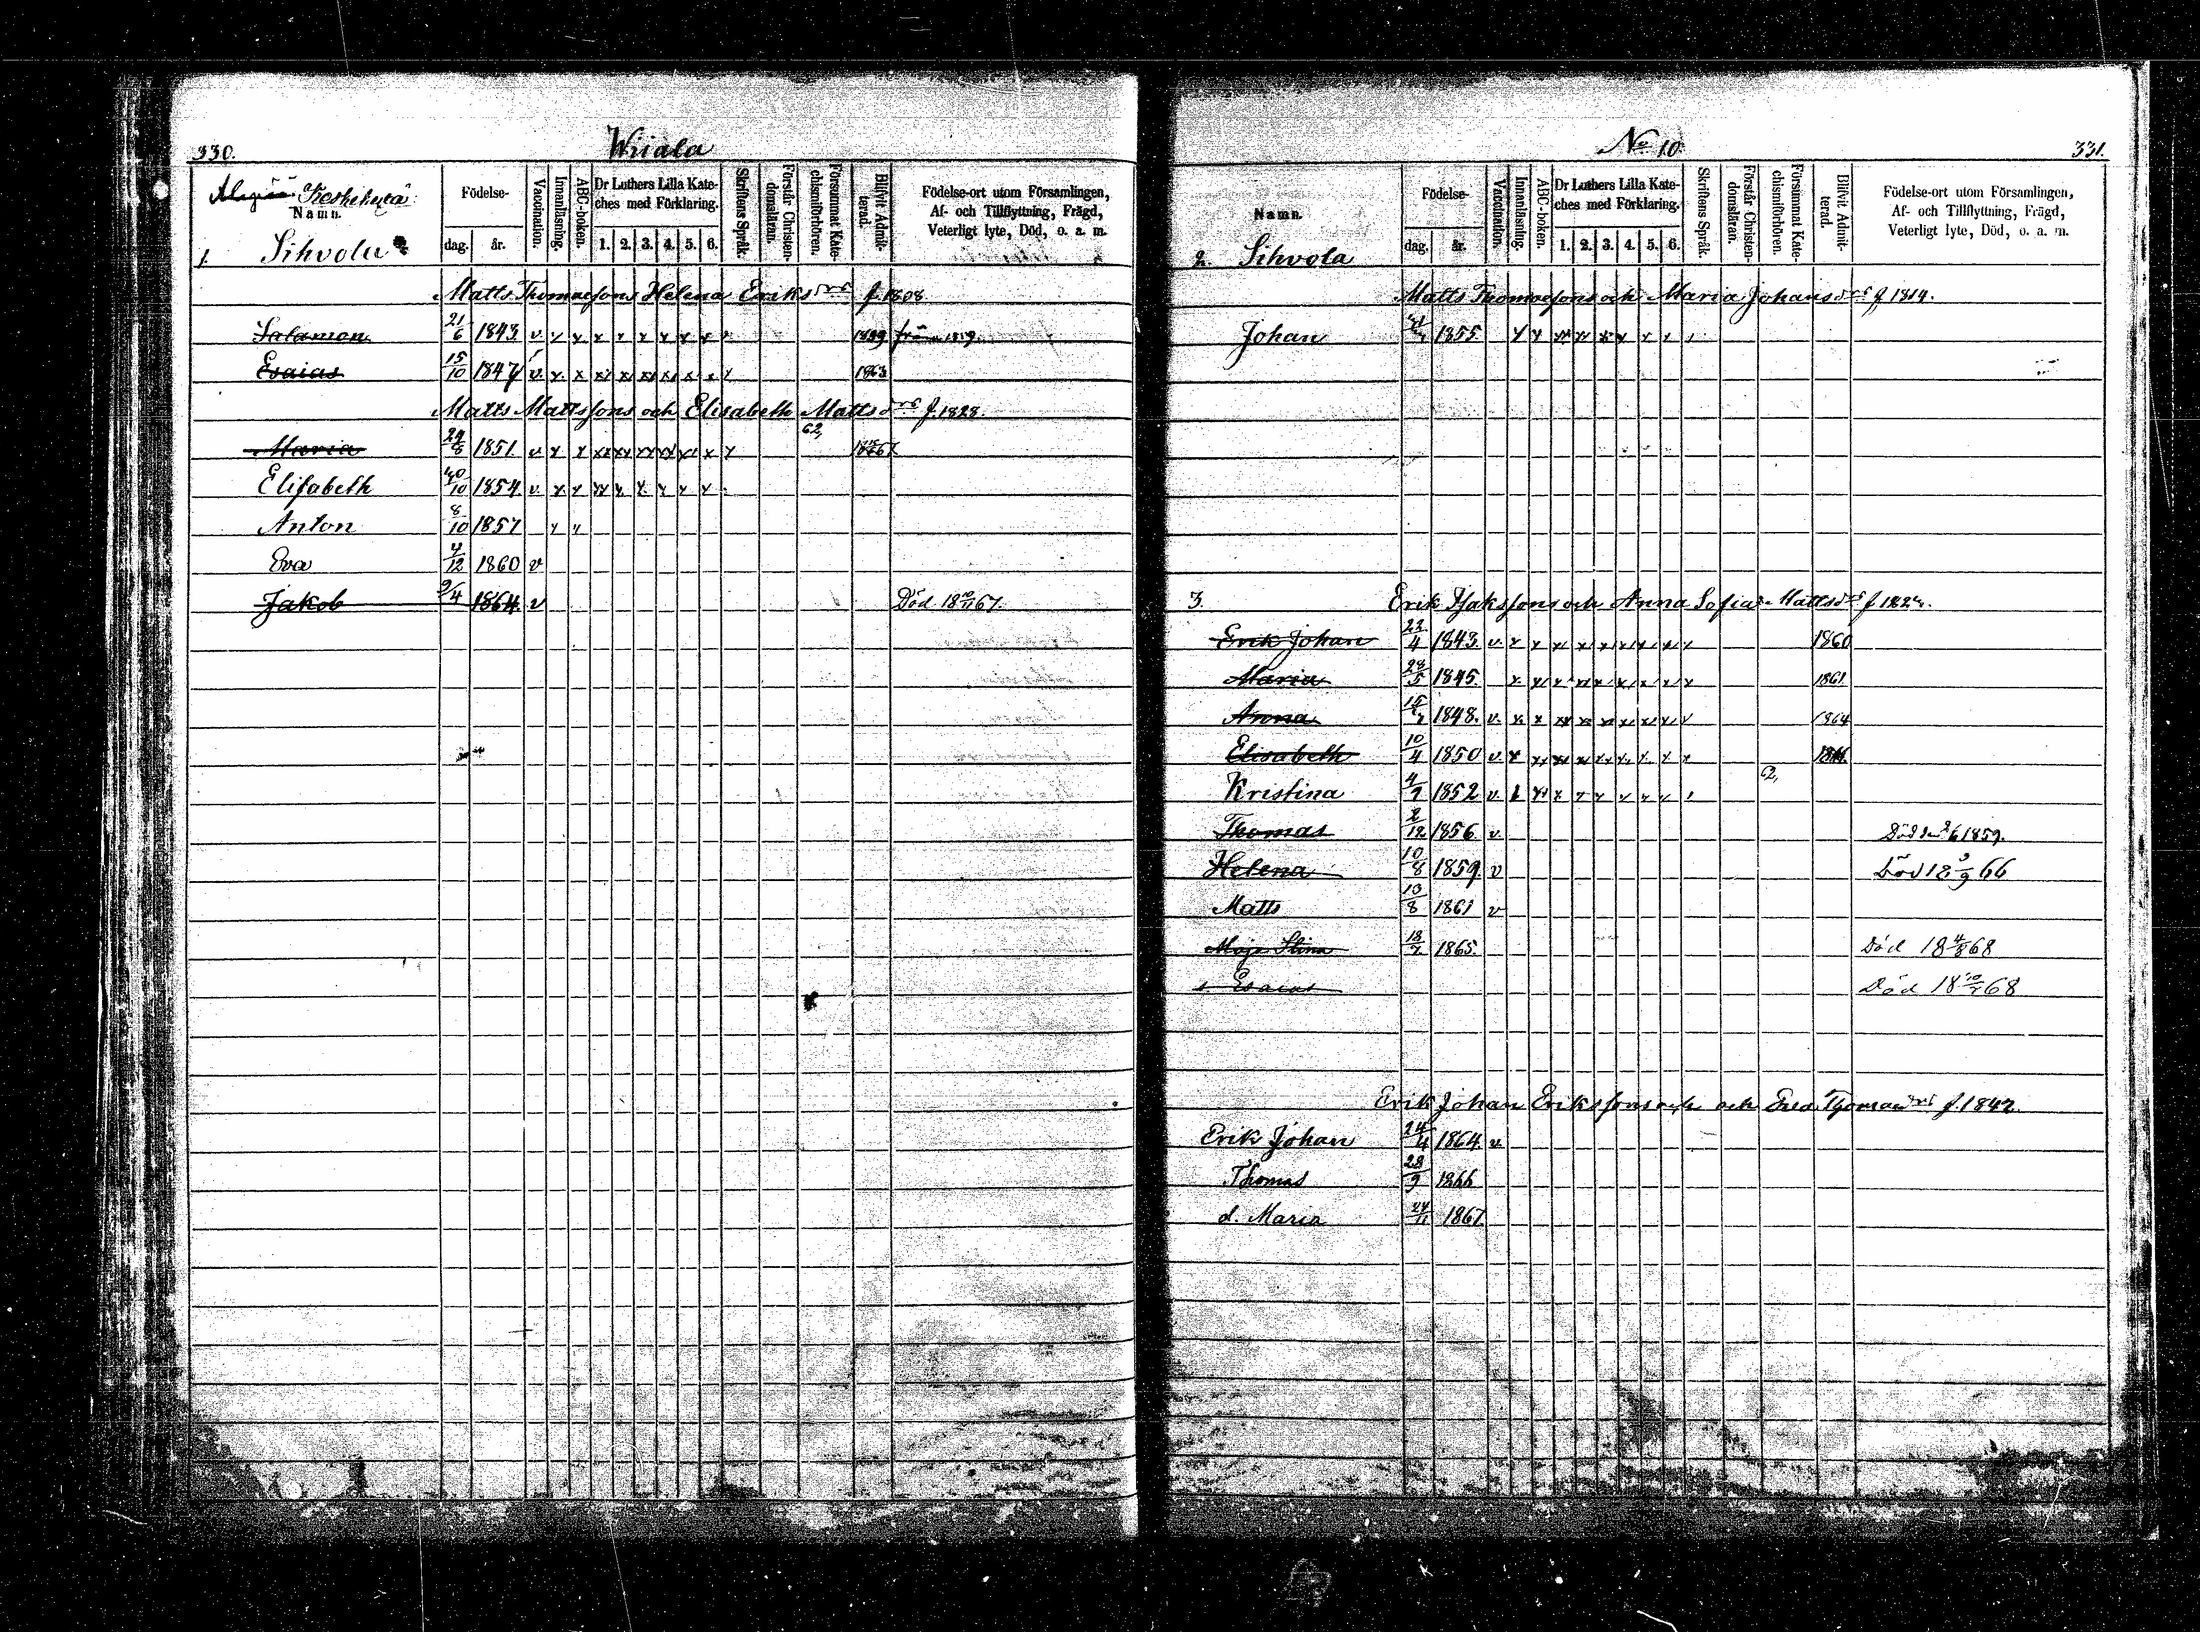 330.
Wiiala
Keskikylä
Namn.
Födelse-
dag. år.
Vaccination.
Innanläsning.
ABC-boken.
Dr Luthers Lilla Kate-
ches med Förklaring.
1. 2. 3. 4. 5. 6.
Skriftens Språk.
Förstår Christen-
domsläran.
Försummat Kate-
chismiförhören.
Blifvit Admit-
terad.
Födelse-ort utom Församlingen,
Af- och Tillflyttning, Frägd,
Veterligt lyte, Död, o. a. m.
1. Sihvola
Matts Thomassons Helena Eriksdrs f. 1808.
Salamon 21/6 1843. v x x x x x x x x 1859
Esaias 15/10 1847 v. x x x x x x x x 1863
Matts Mattssons och Elisabeth Mattsdrs f. 1828.
62,
Maria 24/8 1851 v x x xx xx xx xx x x x
Elisabeth 1854. v. x x xx x x x x x
Anton 8/10 1857 x x
Eva 4/12 1860 v
Jakob 9/4 1864. v Död 18 67.
No 10.
331.
Namn.
Födelse-
dag. år.
Vaccination.
Innanläsning.
ABC-boken.
Dr Luthers Lilla Kate-
ches med Förklaring.
1. 2. 3. 4. 5. 6.
Skriftens Språk.
Förstår Christen-
domsläran.
Försummat Kate-
chismiförhören.
Blifvit Admit-
terad.
Födelse-ort utom Församlingen,
Af- och Tillflyttning, Frägd,
Veterligt lyte, Död, o. a. m.
2. Sihvola
Matts Thomassons och Maria Johansdrs f 1819.
Johan 1855. x x xx xx xx x x x
3. Erik Isakssons och Anna Sofia Mattsdrs f
Erik Johan 22/4 1843. v. x x x x x x x x x 1860
Maria 28/5 1845. x x x x x x x x x 1861
Anna 1848. v. x x xx x xx x x x x 1864
Elisabeth 10/4 1850 v. x xx xx xx xx x x x
62,
Kristina 4/9 1852 v x x x x x x
Thomas 2/12 1856. v. 1859.
Helena 10/8 1859. v Död 18 3/9 66
Matts 13/8 1861 v
Maja Stina 18/7 1865. Död 18 4/8 68
s. Esaias Död 18 68
Erik Johan Erikssons och Eva Thomasdrs f. 1842.
Erik Johan 24/4 1864. v.
Thomas 28/9 1866
d. Maria 1867